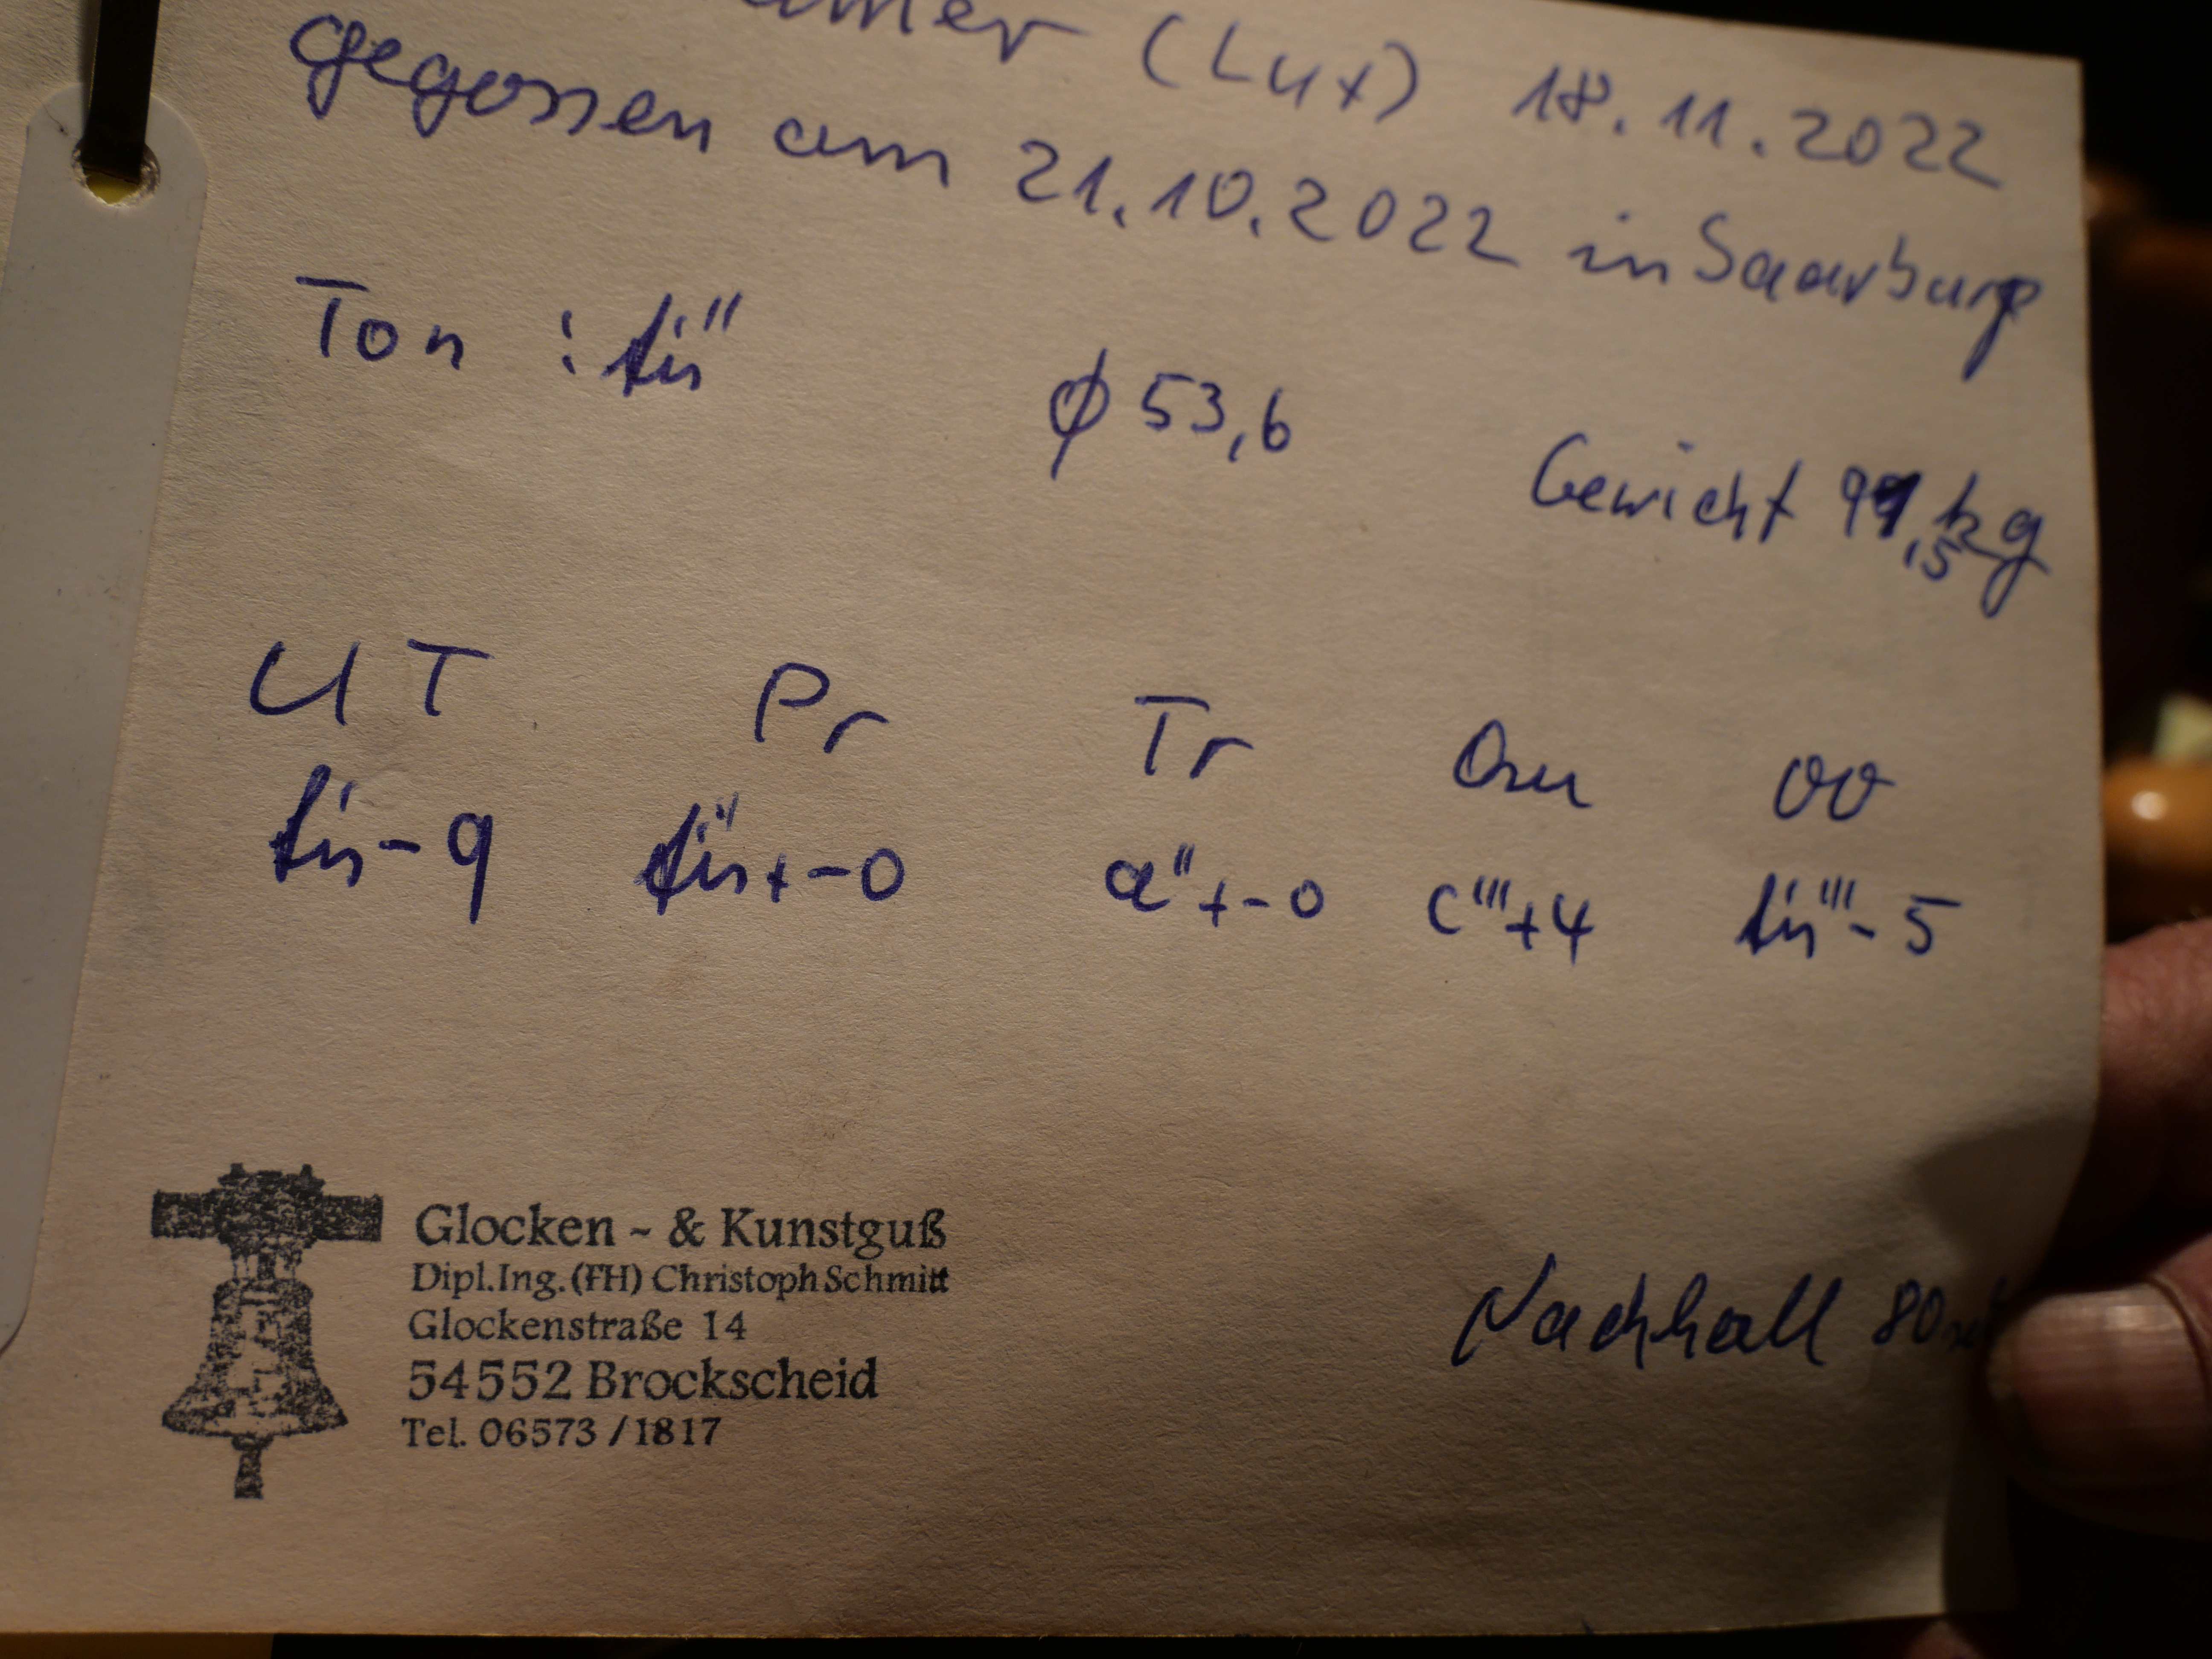 (Lux) 18.11.2022
gegossen am 21.10.2022 in Saarburg
Ton : fis'' ϕ 53,6 Gewicht 99,5 kg
UT Pr Tr Qu OO
fis' - 9 fis'' +-0 a'' +-0 c''' +4 fis''' - 5
Glocken ~ & Kunstguß
Dipl.Ing.(FH) Christoph Schmitt
Glockenstraße 14
54552 Brockscheid
Tel. 06573 /1817
Nachhall 80